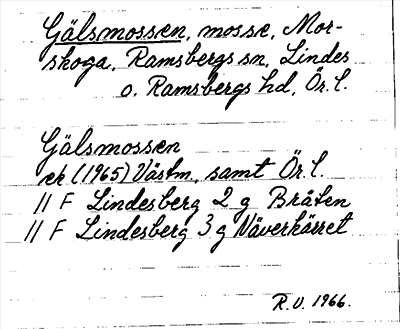 Gälsmossen, mosse, Mor-
skoga, Ramsbergs sn, Lindes
o. Ramsbergs hd, Ör. l.
Gälsmossen
ek (1965) Västm. samt Ör. l.
11 F Lindesberg 2 g Bråten
11 F Lindesberg 3 g Näverkärret
R.U. 1966.